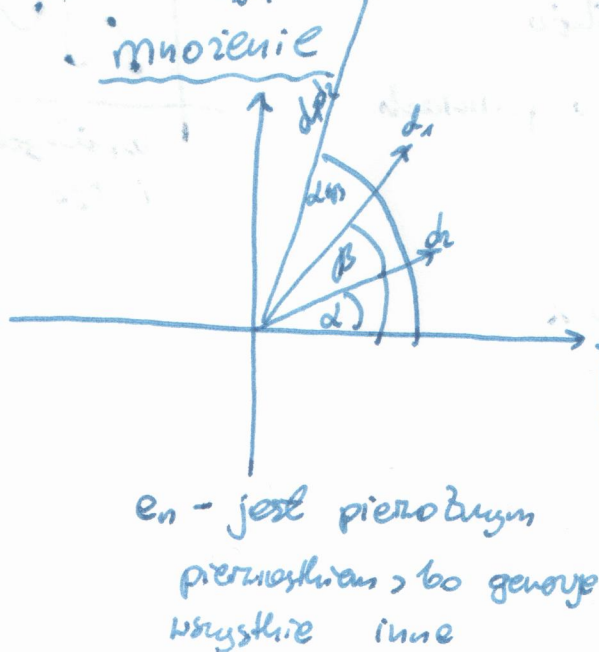 mnożenie
d₁d₂
d₁
α+β
d₂
β
α
eₙ - jest pierwotnym
pierwiastkiem, bo generuje
wszystkie inne